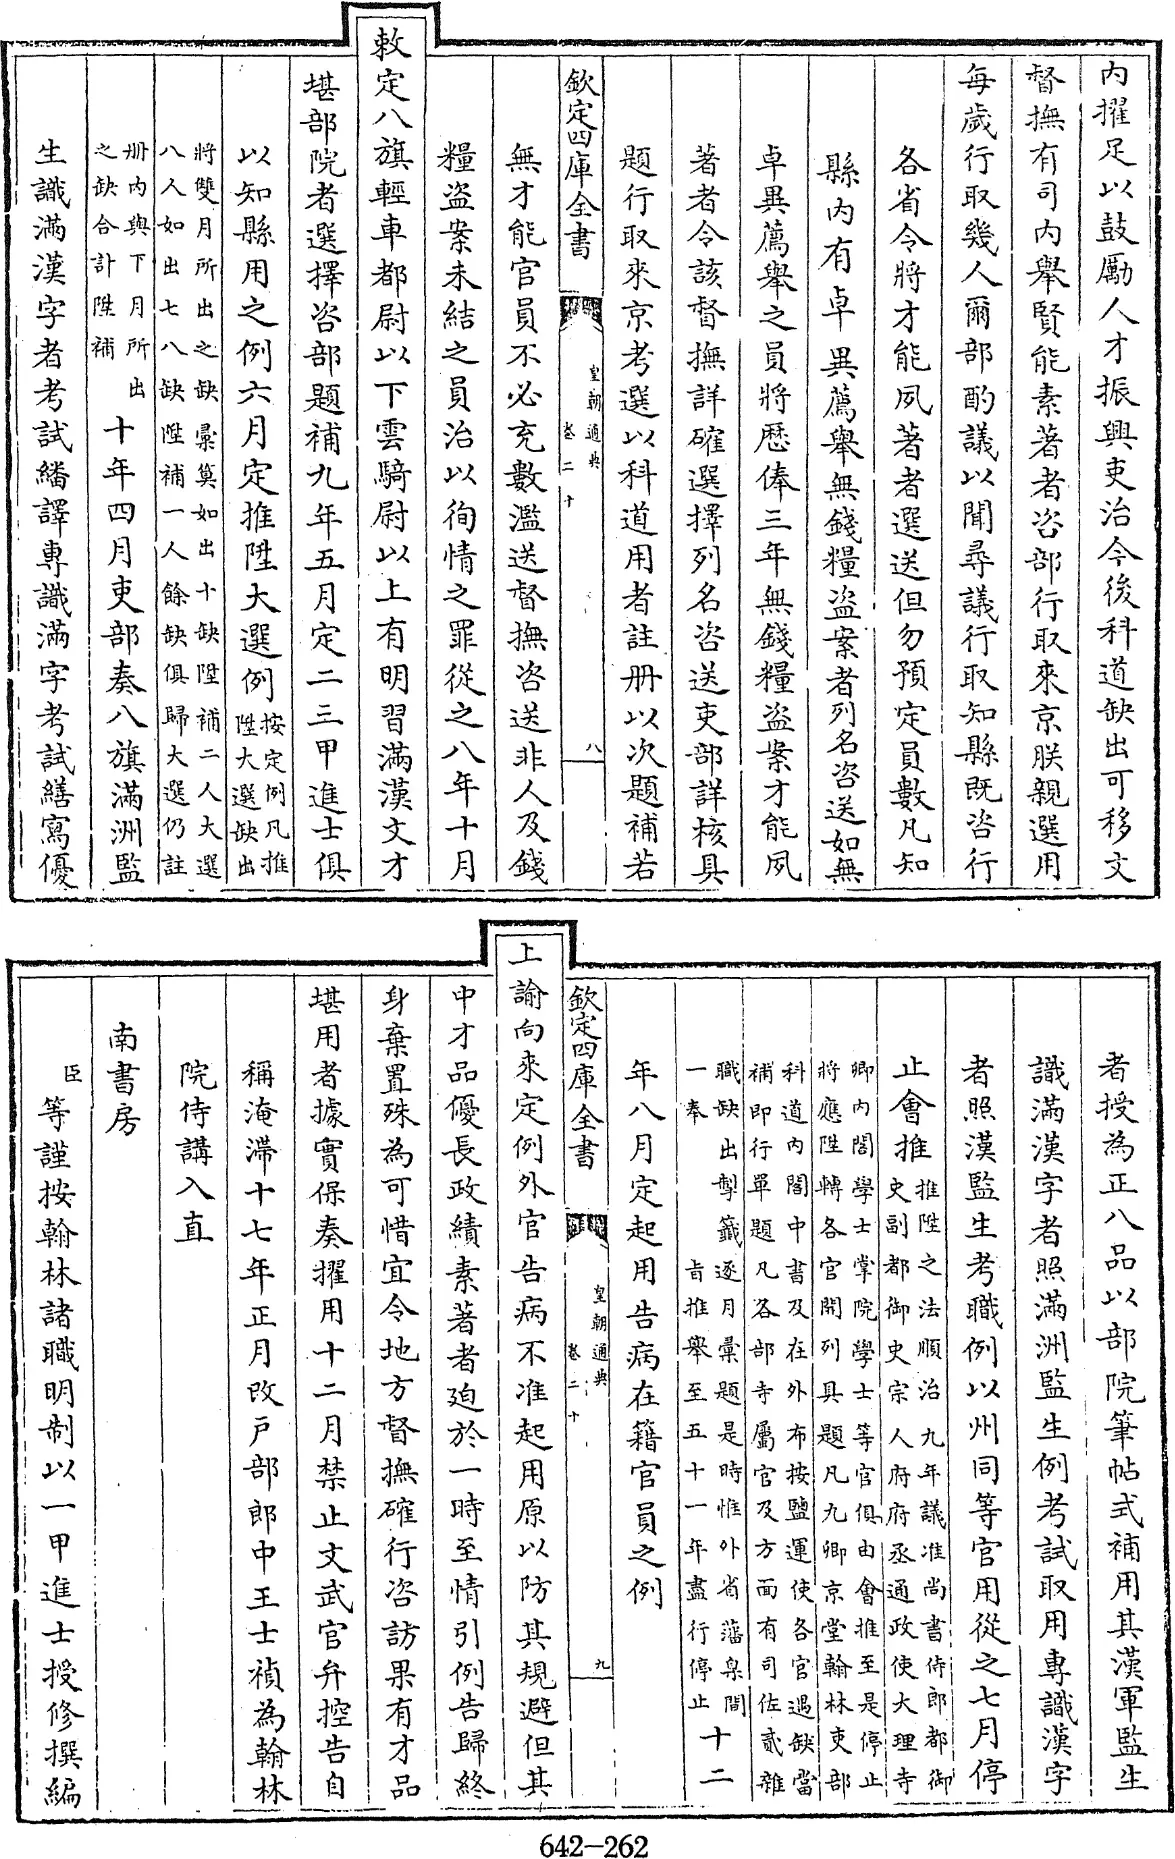 内擢足以鼓勵人才振興吏治今後科道缺出可移文
督撫有司内舉賢能素著者咨部行取來京朕親選用
每歲行取幾人爾部酌議以聞尋議行取知縣既咨行
各省令將才能夙著者選送但勿預定員數凡知
縣内有卓異薦舉無錢糧盜案者列名咨送如無
卓異薦舉之員將歷俸三年無錢糧盜案才能夙
著者令該督撫詳確選擇列名咨送吏部詳核具
題行取來京考選以科道用者註冊以次題補若
欽定四庫全書
皇朝通典
卷二十
八
無才能官員不必充數濫送督撫咨送非人及錢
糧盜案未結之員治以徇情之罪從之八年十月
敕定八旗輕車都尉以下雲騎尉以上有明習滿漢文才
堪部院者選擇咨部題補九年五月定二三甲進士俱
以知縣用之例六月定推陞大選例按定例凡推
陞大選缺出
將雙月所出之缺彙算如出十缺陞補二人大選
八人如出七八缺陞補一人餘缺俱歸大選仍註
冊内與下月所出
之缺合計陞補
十年四月吏部奏八旗滿洲監
生識滿漢字者考試繙譯專識滿字考試繕寫優
者授為正八品以部院筆帖式補用其漢軍監生
識滿漢字者照滿洲監生例考試取用專識漢字
者照漢監生考職例以州同等官用從之七月停
止會推推陞之法順治九年議准尚書侍郎都御
史副都御史宗人府府丞通政使大理寺
卿内閣學士掌院學士等官俱由會推至是停止
將應陞轉各官開列具題凡九卿京堂翰林吏部
科道内閣中書及在外布按鹽運使各官遇缺當
補即行單題凡各部寺屬官及方面有司佐貳雜
職缺出掣籤逐月彙題是時惟外省藩臬間
一奉 旨推舉至五十一年盡行停止
十二
年八月定起用告病在籍官員之例
上諭向來定例外官告病不准起用原以防其規避但其
欽定四庫全書
皇朝通典
卷二十
九
中才品優長政績素著者迫於一時至情引例告歸終
身棄置殊為可惜宜令地方督撫確行咨訪果有才品
堪用者據實保奏擢用十二月禁止文武官弁控告自
稱淹滯十七年正月改戶部郎中王士禎為翰林
院侍講入直
南書房
臣等謹按翰林諸職明制以一甲進士授修撰編
642-262